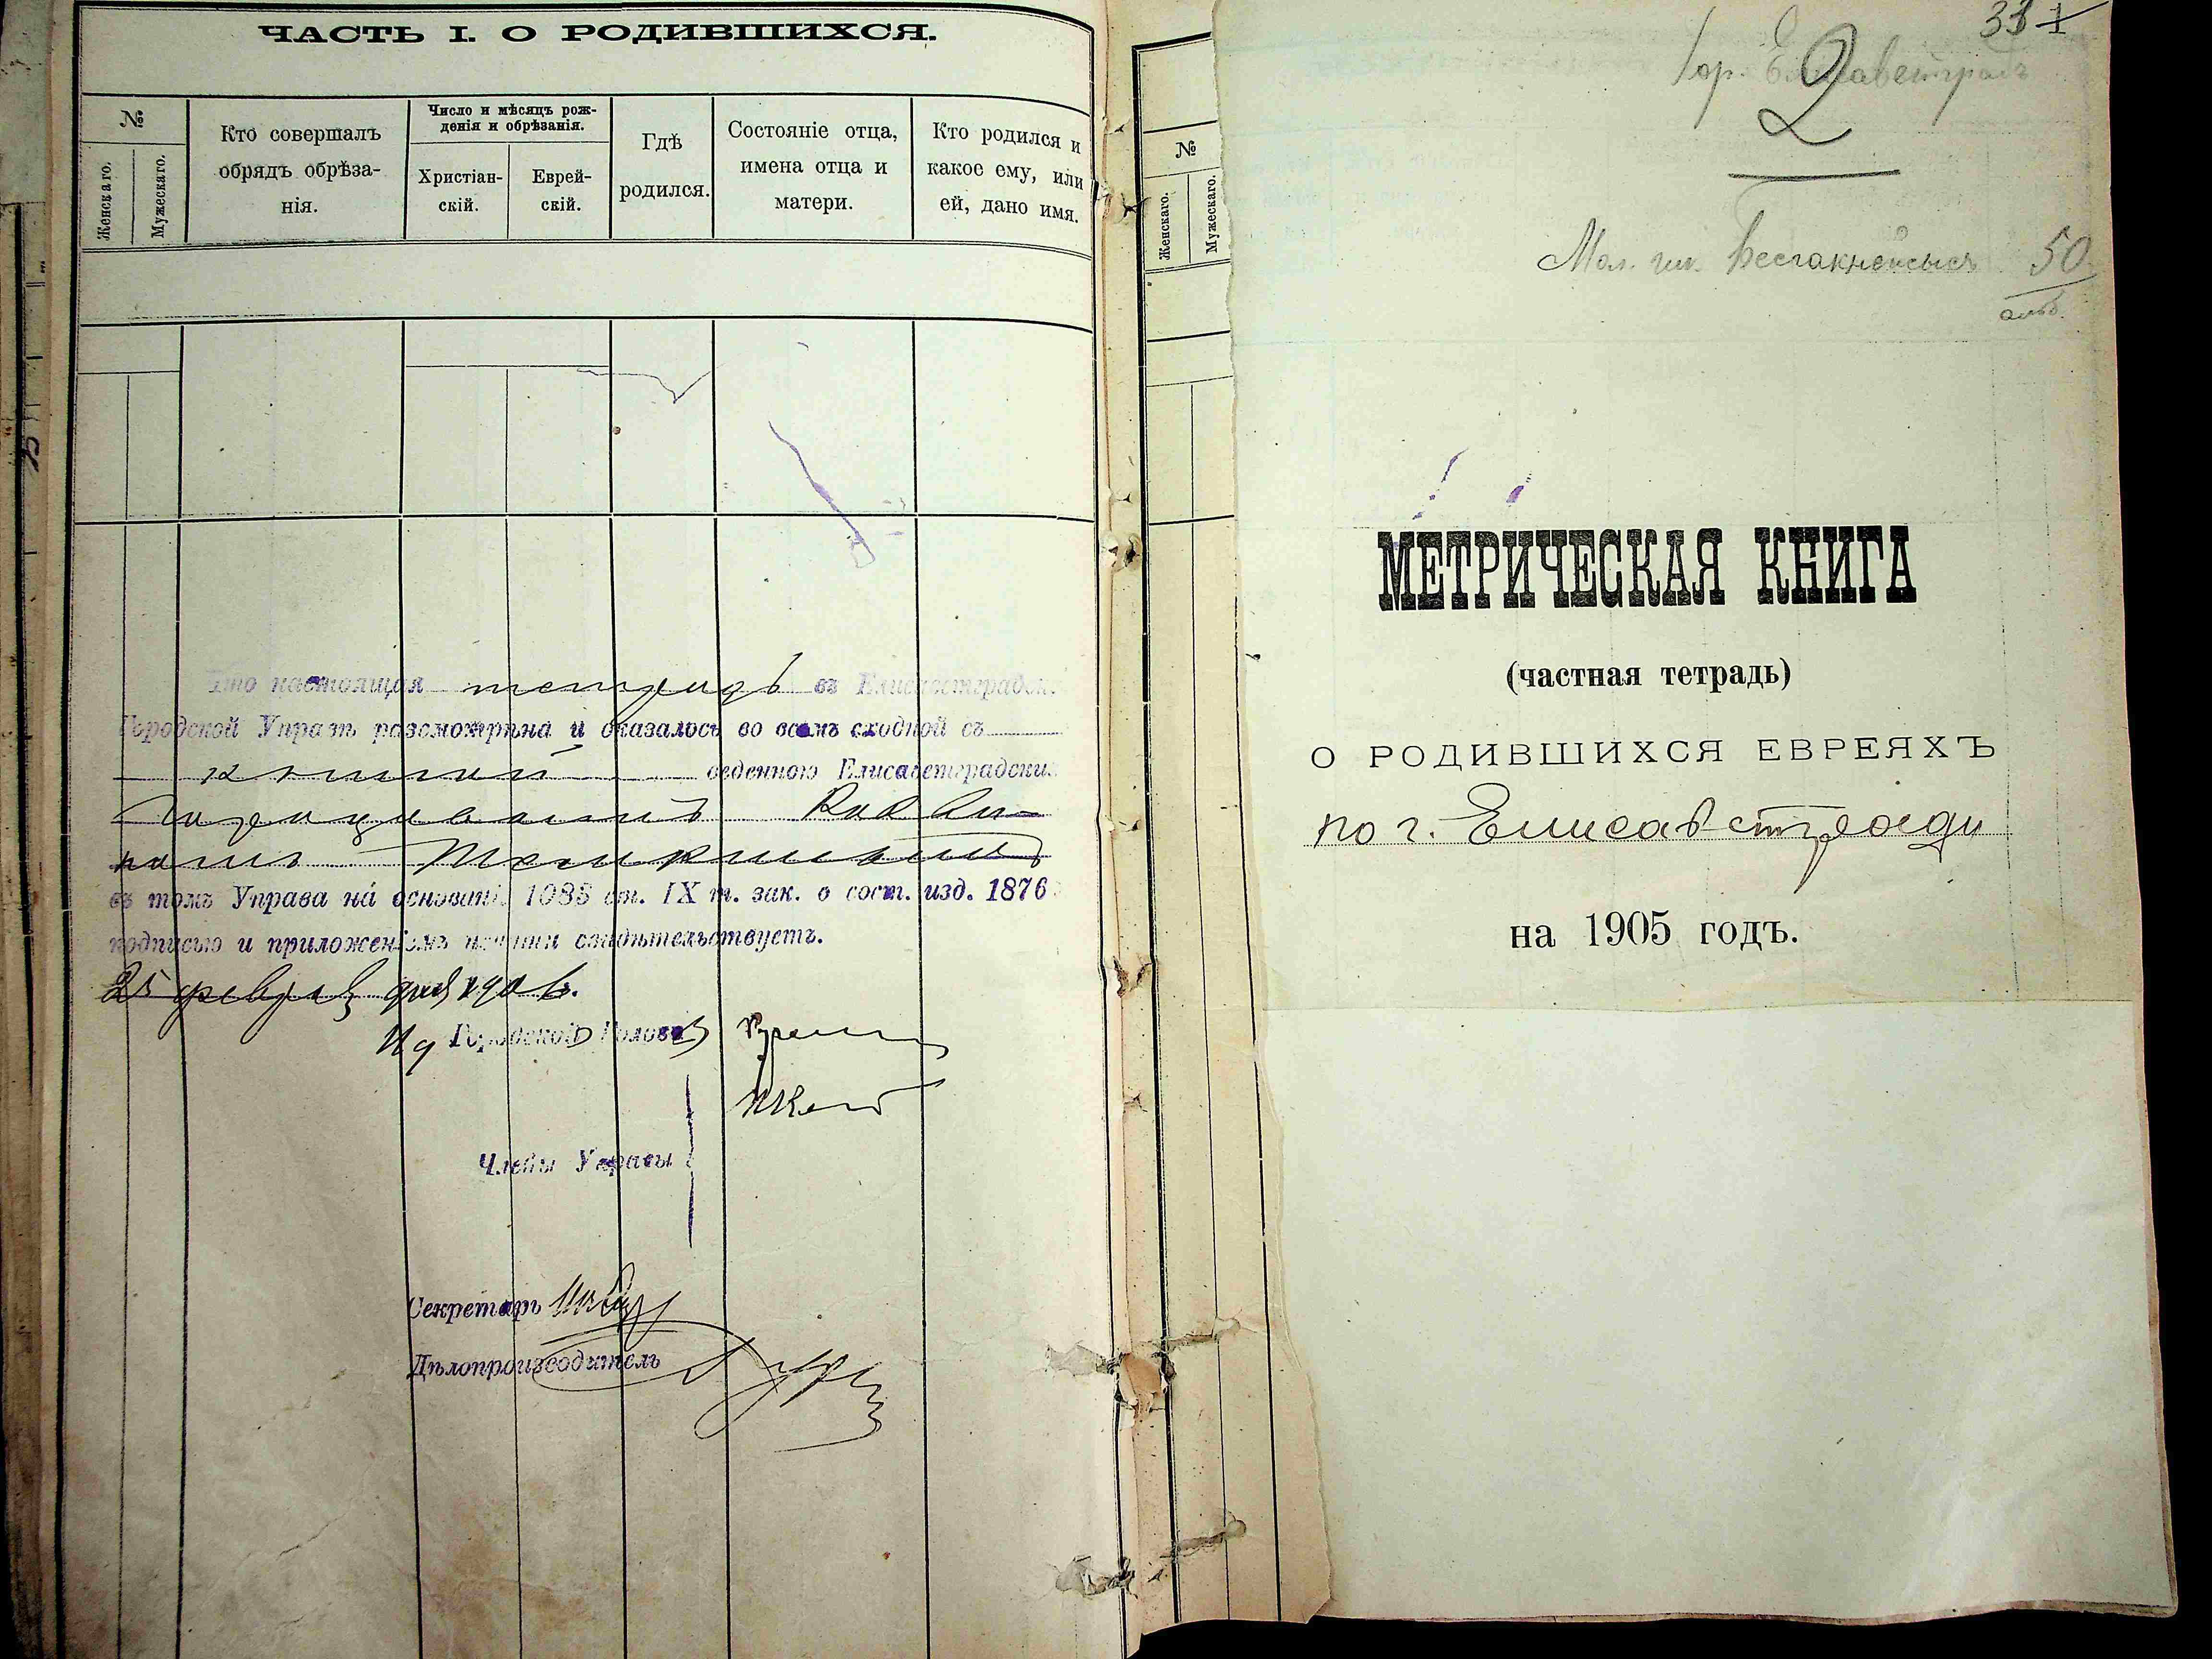 ЧАСТЬ I. О РОДИВШИХСЯ.
№
Женскаго.
Мужескаго.
Кто совершалъ
обрядъ обрѣза-
нія.
Число и мѣсяцъ рож-
денія и обрѣзанія.
Христіан-
скій.
Еврей-
скій.
Гдѣ
родился.
Состояніе отца,
имена отца и
матери.
Кто родился и
какое ему, или
ей, дано имя.
Что настоящая тетрадь въ Елисаветградск.
Городской Управѣ разсмотрѣна и оказалось во всемъ сходной съ
книгой веденною Елисаветградски
Рав
въ томъ Управа на основані 1085 ст. IX т. зак. о сост. изд. 1876
подписью и приложеніемъ печати свидѣтельствуетъ.
25 февраля дня 1906.
Ид Городской Голова
Члены Управы
Секретарь
Дѣлопроизводитель
№
Женскаго.
Мужескаго.
31
гор. Елисаветградъ
2
Мол. шк. 50
МЕТРИЧЕСКАЯ КНИГА
(частная тетрадь)
О РОДИВШИХСЯ ЕВРЕЯХЪ
по г. Елисаветграду
на 1905 годъ.